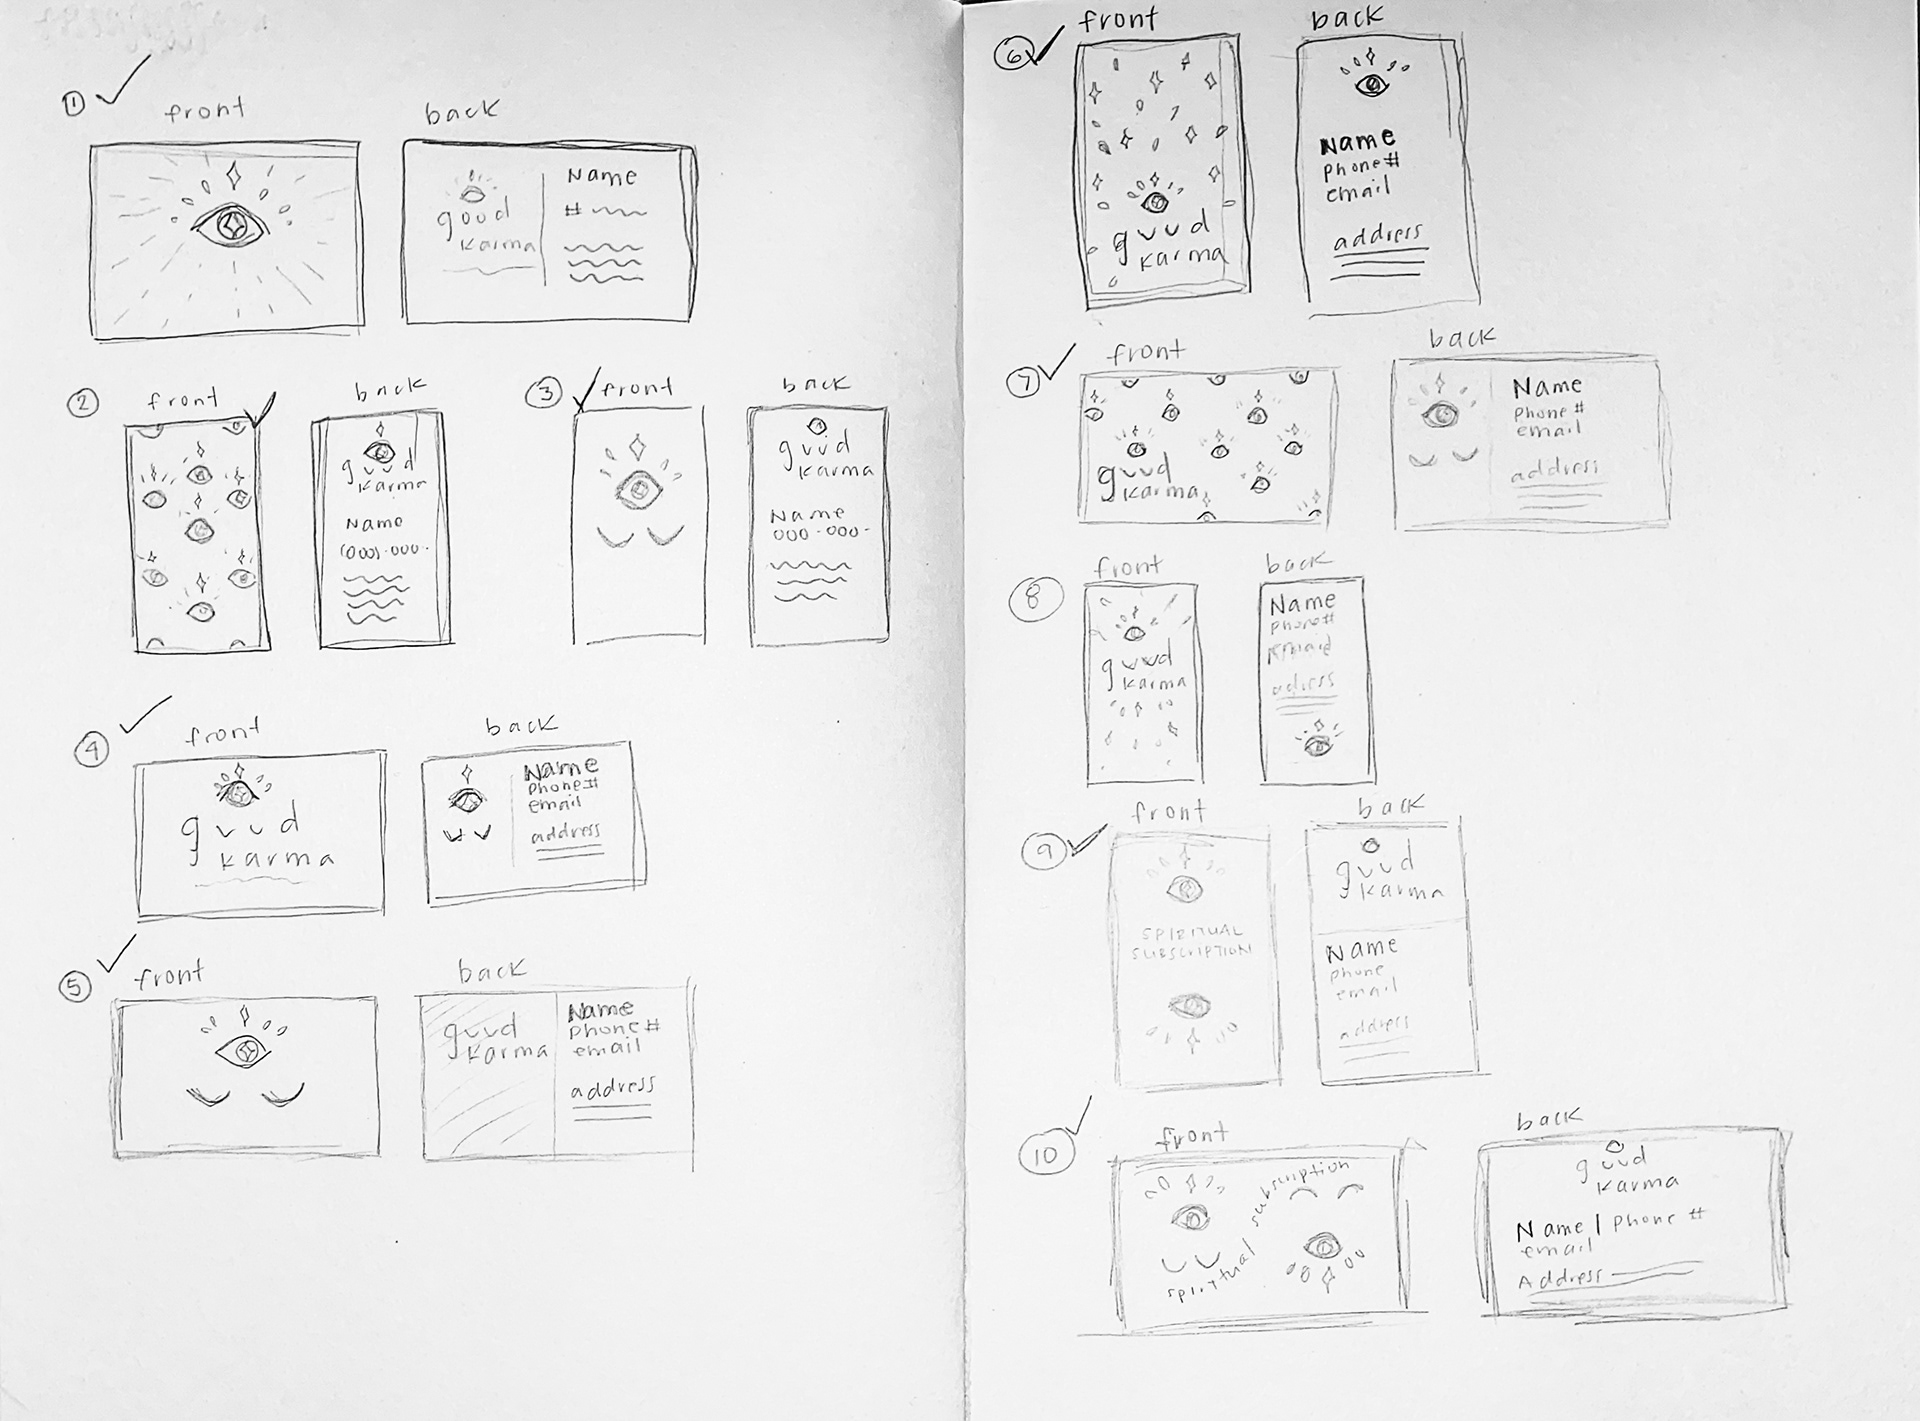 1
front
back
good
karma
Name
#
2
front
back
guud
karma
Name
(000)-000-
3
front
back
guud
karma
Name
000-000-
4
front
back
guud
karma
Name
phone#
email
address
5
front
back
guud
karma
Name
phone #
email
address
6
front
back
guud
karma
Name
phone#
email
address
7
front
back
guud
karma
Name
phone #
email
address
8
front
back
guud
karma
Name
phone#
adress
9
front
back
SPIRITUAL
SUBSCRIPTION
guud
karma
Name
phone
email
address
10
front
back
spiritual subscription
guud
karma
Name | phone #
email
Address